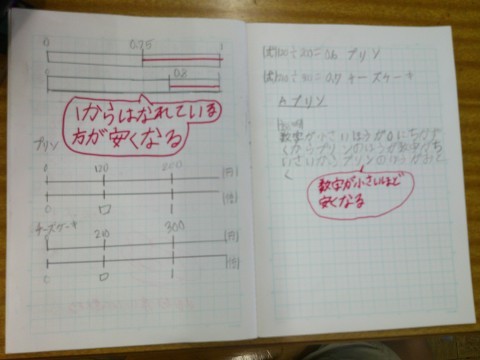 0 0.75 1
0.8 1
1からはなれている
方が安くなる
プリン
0 120 200 (円)
0 □ 1 (倍)
チーズケーキ
0 210 300 (円)
0 □ 1 (倍)
プリン
チーズケーキ
A プリン
数字が小さいほうが0にちかづ
くからプリンのほうが数字がち
いさいからプリンのほうが
く
数字が小さいほど
安くなる